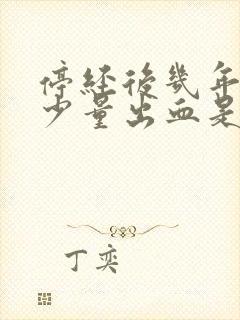 停經後幾年
少量出血是
丁奕